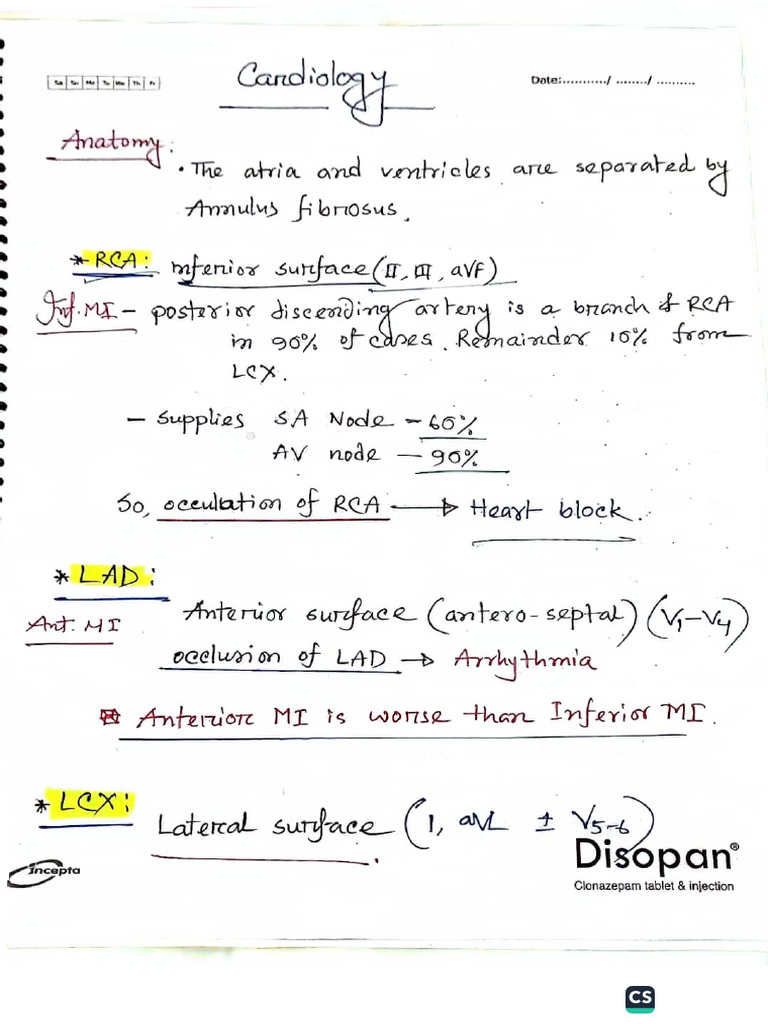 Sa Su Mo Tu We Th Fr
Cardiology
Date:.........../ ......../ ..........
Anatomy:
• The atria and ventricles are separated by
Annulus fibrosus.
* RCA: Inferior surface (II, III, aVF)
Inf. MI – posterior discending artery is a branch of RCA
in 90% of cases. Remainder 10% from
LCX.
– supplies SA Node – 60%
AV node – 90%
So, occulation of RCA → Heart block.
* LAD:
Anterior surface (antero-septal) (V1–V4)
Ant. MI
occlusion of LAD → Arrhythmia
Anterior MI is worse than Inferior MI.
* LCX:
Lateral surface (I, aVL ± V5-6)
Incepta
Disopan®
Clonazepam tablet & injection
CS